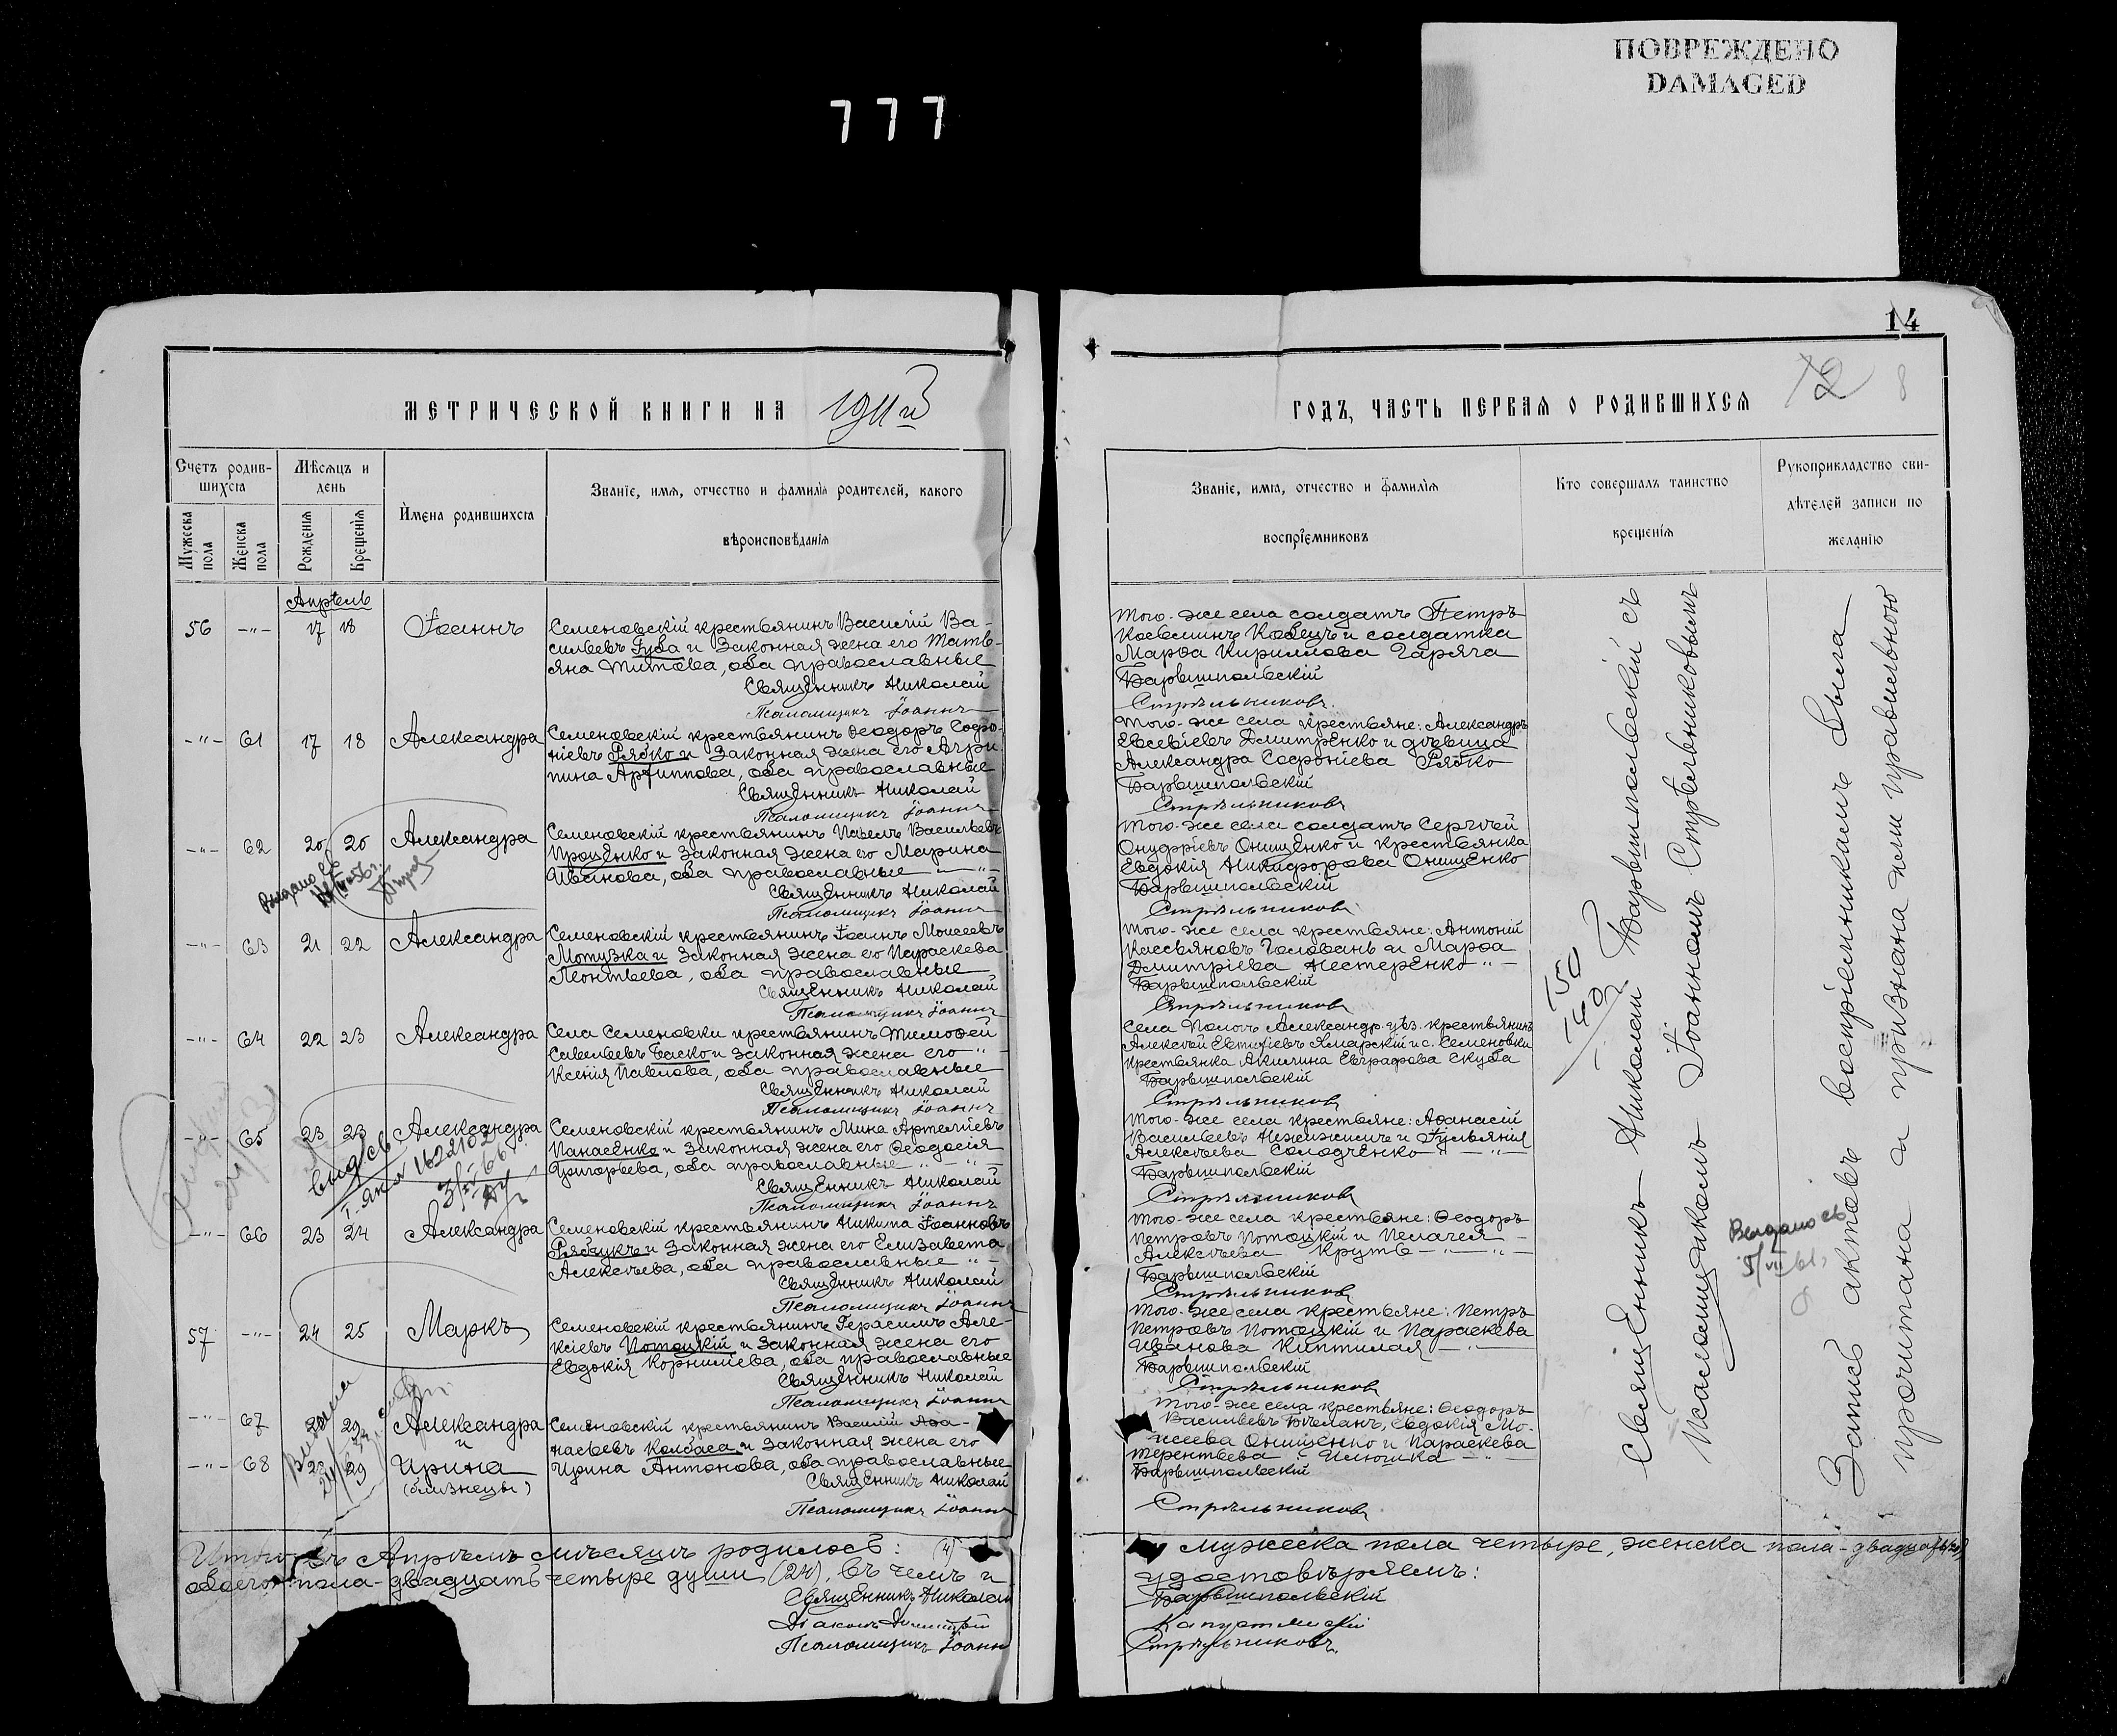 ПОВРЕЖДЕНО
DAMAGED
777
14
МЕТРИЧЕСКОЙ КНИГИ НА 1911й
ГОДЪ, ЧАСТЬ ПЕРВАЯ О РОДИВШИХСЯ
12
8
Счетъ родив-
шихся
Мѣсяцъ и
день
Мужеска
пола
Женска
пола
Рожденія
Крещенія
Имена родившихся
Званіе, имя, отчество и фамилія родителей, какого
вѣроисповѣданія
Званіе, имя, отчество и фамилія
воспріемниковъ
Кто совершалъ таинство
крещенія
Рукоприкладство сви-
дѣтелей записи по
желанію
Апрѣль
56 -"- 17 18 Іоаннъ
Семеновскій крестьянинъ Василій Ва-
сильевъ Губа и законная жена его Татья-
яна Титова, оба православные
Священникъ Николай
Псаломщикъ Іоаннъ
Того-же села солдатъ Петръ
Ковецъ и солдатка
Марѳа Кириллова Гаряга
Барвышпольскій
Стрѣльниковъ.
-"- 61 17 18 Александра
Семеновскій крестьянинъ Ѳеодоръ Софро-
ніевъ Рябко и законная жена его Агри-
пина Архиппова, оба православные
Священникъ Николай
Псаломщикъ Іоаннъ
Того-же села крестьяне: Александръ
Евсевіевъ Дмитренко и дѣвица
Александра Софроніева Рябко
Барвышпольскій
Стрѣльниковъ
-"- 62 20 20 Александра
Семеновскій крестьянинъ Павелъ Васильевъ
Проценко и законная жена его Марина
Иванова, оба православные
Священникъ Николай
Псаломщикъ Іоаннъ
Того-же села солдатъ Сергѣй
Онуфріевъ Онищенко и крестьянка
Евдокія Никифорова Онищенко
Барвышпольскій
Стрѣльниковъ
-"- 63 21 22 Александра
Семеновскій крестьянинъ Іоаннъ Моисеевъ
Мотузка и законная жена его Параскева
Леонтьева, оба православные
Священникъ Николай
Псаломщикъ Іоаннъ
Того-же села крестьяне: Антоній
Касьяновъ Головань и Марѳа
Дмитріева Нестеренко
Барвышпольскій
Стрѣльниковъ
-"- 64 22 23 Александра
Села Семеновки крестьянинъ Тимоѳей
Савельевъ Баско и законная жена его
Ксенія Павлова, оба православные
Священникъ Николай
Псаломщикъ Іоаннъ
Села Пологъ Александр. уѣз. крестьянинъ
Алексѣй Евтихіевъ Ямарскій и с. Семеновки
крестьянка Акилина Евграфова Скуба
Барвышпольскій
Стрѣльниковъ
-"- 65 23 23 Александра
Семеновскій крестьянинъ Мина Артеміевъ
Панасенко и законная жена его Ѳеодосія
Григорьева, оба православные
Священникъ Николай
Псаломщикъ Іоаннъ
Того-же села крестьяне: Аѳанасій
Васильевъ Нежижимъ и Іульянія
Алексѣева Солодченко
Барвышпольскій
Стрѣльниковъ
-"- 66 23 24 Александра
Семеновскій крестьянинъ Никита Іоанновъ
Рябчукъ и законная жена его Елизавета
Алексѣева, оба православные
Священникъ Николай
Псаломщикъ Іоаннъ
Того-же села крестьяне: Ѳеодоръ
Петровъ Потоцкій и Пелагея
Алексѣева Круть
Барвышпольскій
Стрѣльниковъ
57 -"- 24 25 Маркъ
Семеновскій крестьянинъ Герасимъ Але-
ксіевъ Потоцкій и законная жена его
Евдокія Корниліева, оба православные
Священникъ Николай
Псаломщикъ Іоаннъ
Того-же села крестьяне: Петръ
Петровъ Потоцкій и Параскева
Иванова Киптилая
Барвышпольскій
Стрѣльниковъ
-"- 67 29 Александра
и
-"- 68 28 29 Ирина
(близнецы)
Семеновскій крестьянинъ Василій Аѳа-
насьевъ Колбаса и законная жена его
Ирина Антонова, оба православные
Священникъ Николай
Псаломщикъ Іоаннъ
Того-же села крестьяне: Ѳеодоръ
Васильевъ Бѣланъ, Евдокія Мо-
исеева Онищенко и Параскева
Терентьева Илюшка
Барвышпольскій
Стрѣльниковъ
Священникъ Николай Барвышпольскій съ
псаломщикомъ Іоанномъ Стрѣльниковымъ
Запись актовъ воспріемникамъ была
прочитана и признана ими правильною
Выдано св
Итого въ Апрѣлѣ мѣсяцѣ родилось: (4) мужеска пола четыре, женска пола - двадцать
обоего пола - двадцать четыре души (24), въ чемъ и удостовѣряемъ:
Священникъ Николай Барвышпольскій
Діаконъ Капустянскій
Псаломщикъ Іоаннъ Стрѣльниковъ.